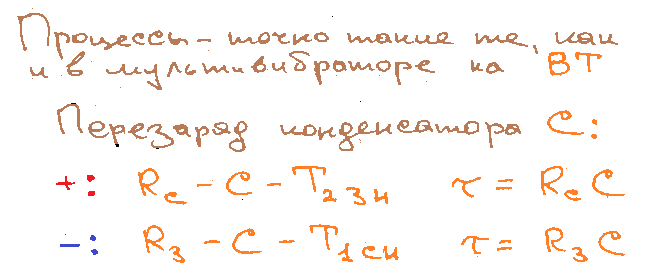 Процессы – точно такие же, как
и в мультивибраторе на ВТ
Перезаряд конденсатора С:
+: Rc – C – T2зи τ = RcC
–: R3 – C – T1си τ = R3C